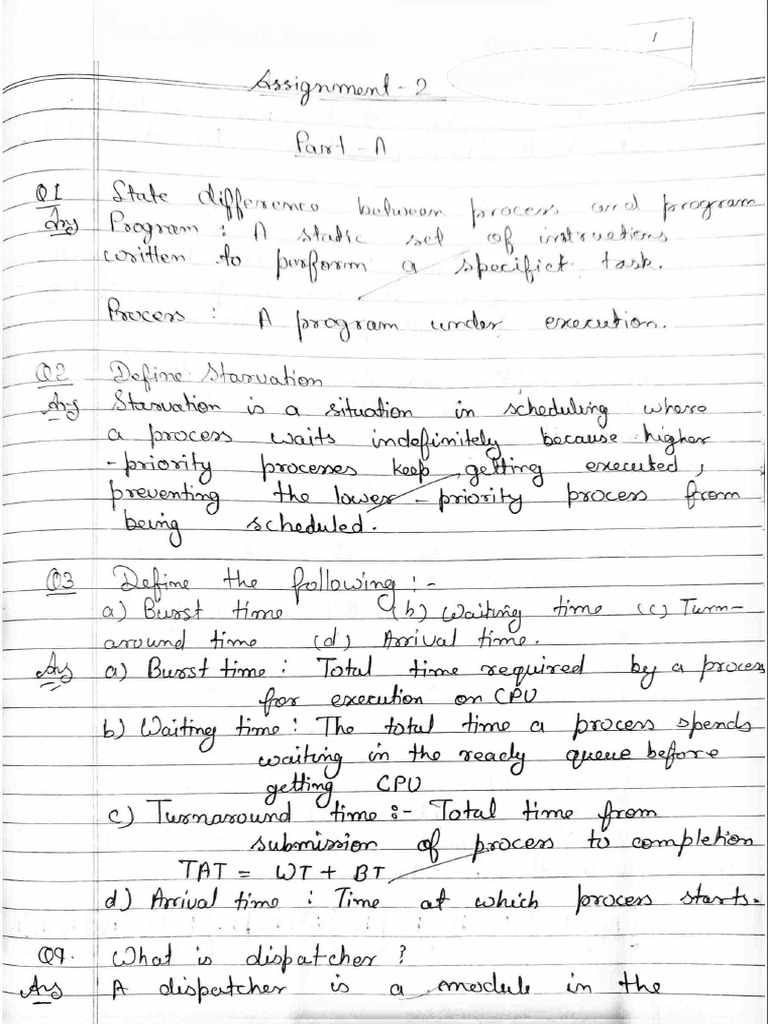 1
Assignment - 2
Part - A
Q1 State difference between process and program
Ans Program : A static set of instructions
written to perform a specifict task.
Process : A program under execution.
Q2 Define Starvation
Ans Starvation is a situation in scheduling where
a process waits indefinitely because higher
-priority processes keep getting executed,
preventing the lower - priority process from
being scheduled.
Q3 Define the following :-
a) Burst time (b) Waiting time (c) Turn-
around time (d) Arrival time.
Ans a) Burst time : Total time required by a process
for execution on CPU
b) Waiting time : The total time a process spends
waiting in the ready queue before
getting CPU
c) Turnaround time :- Total time from
submission of process to completion
TAT = WT + BT
d) Arrival time : Time at which process starts.
Q4. What is dispatcher ?
Ans A dispatcher is a module in the